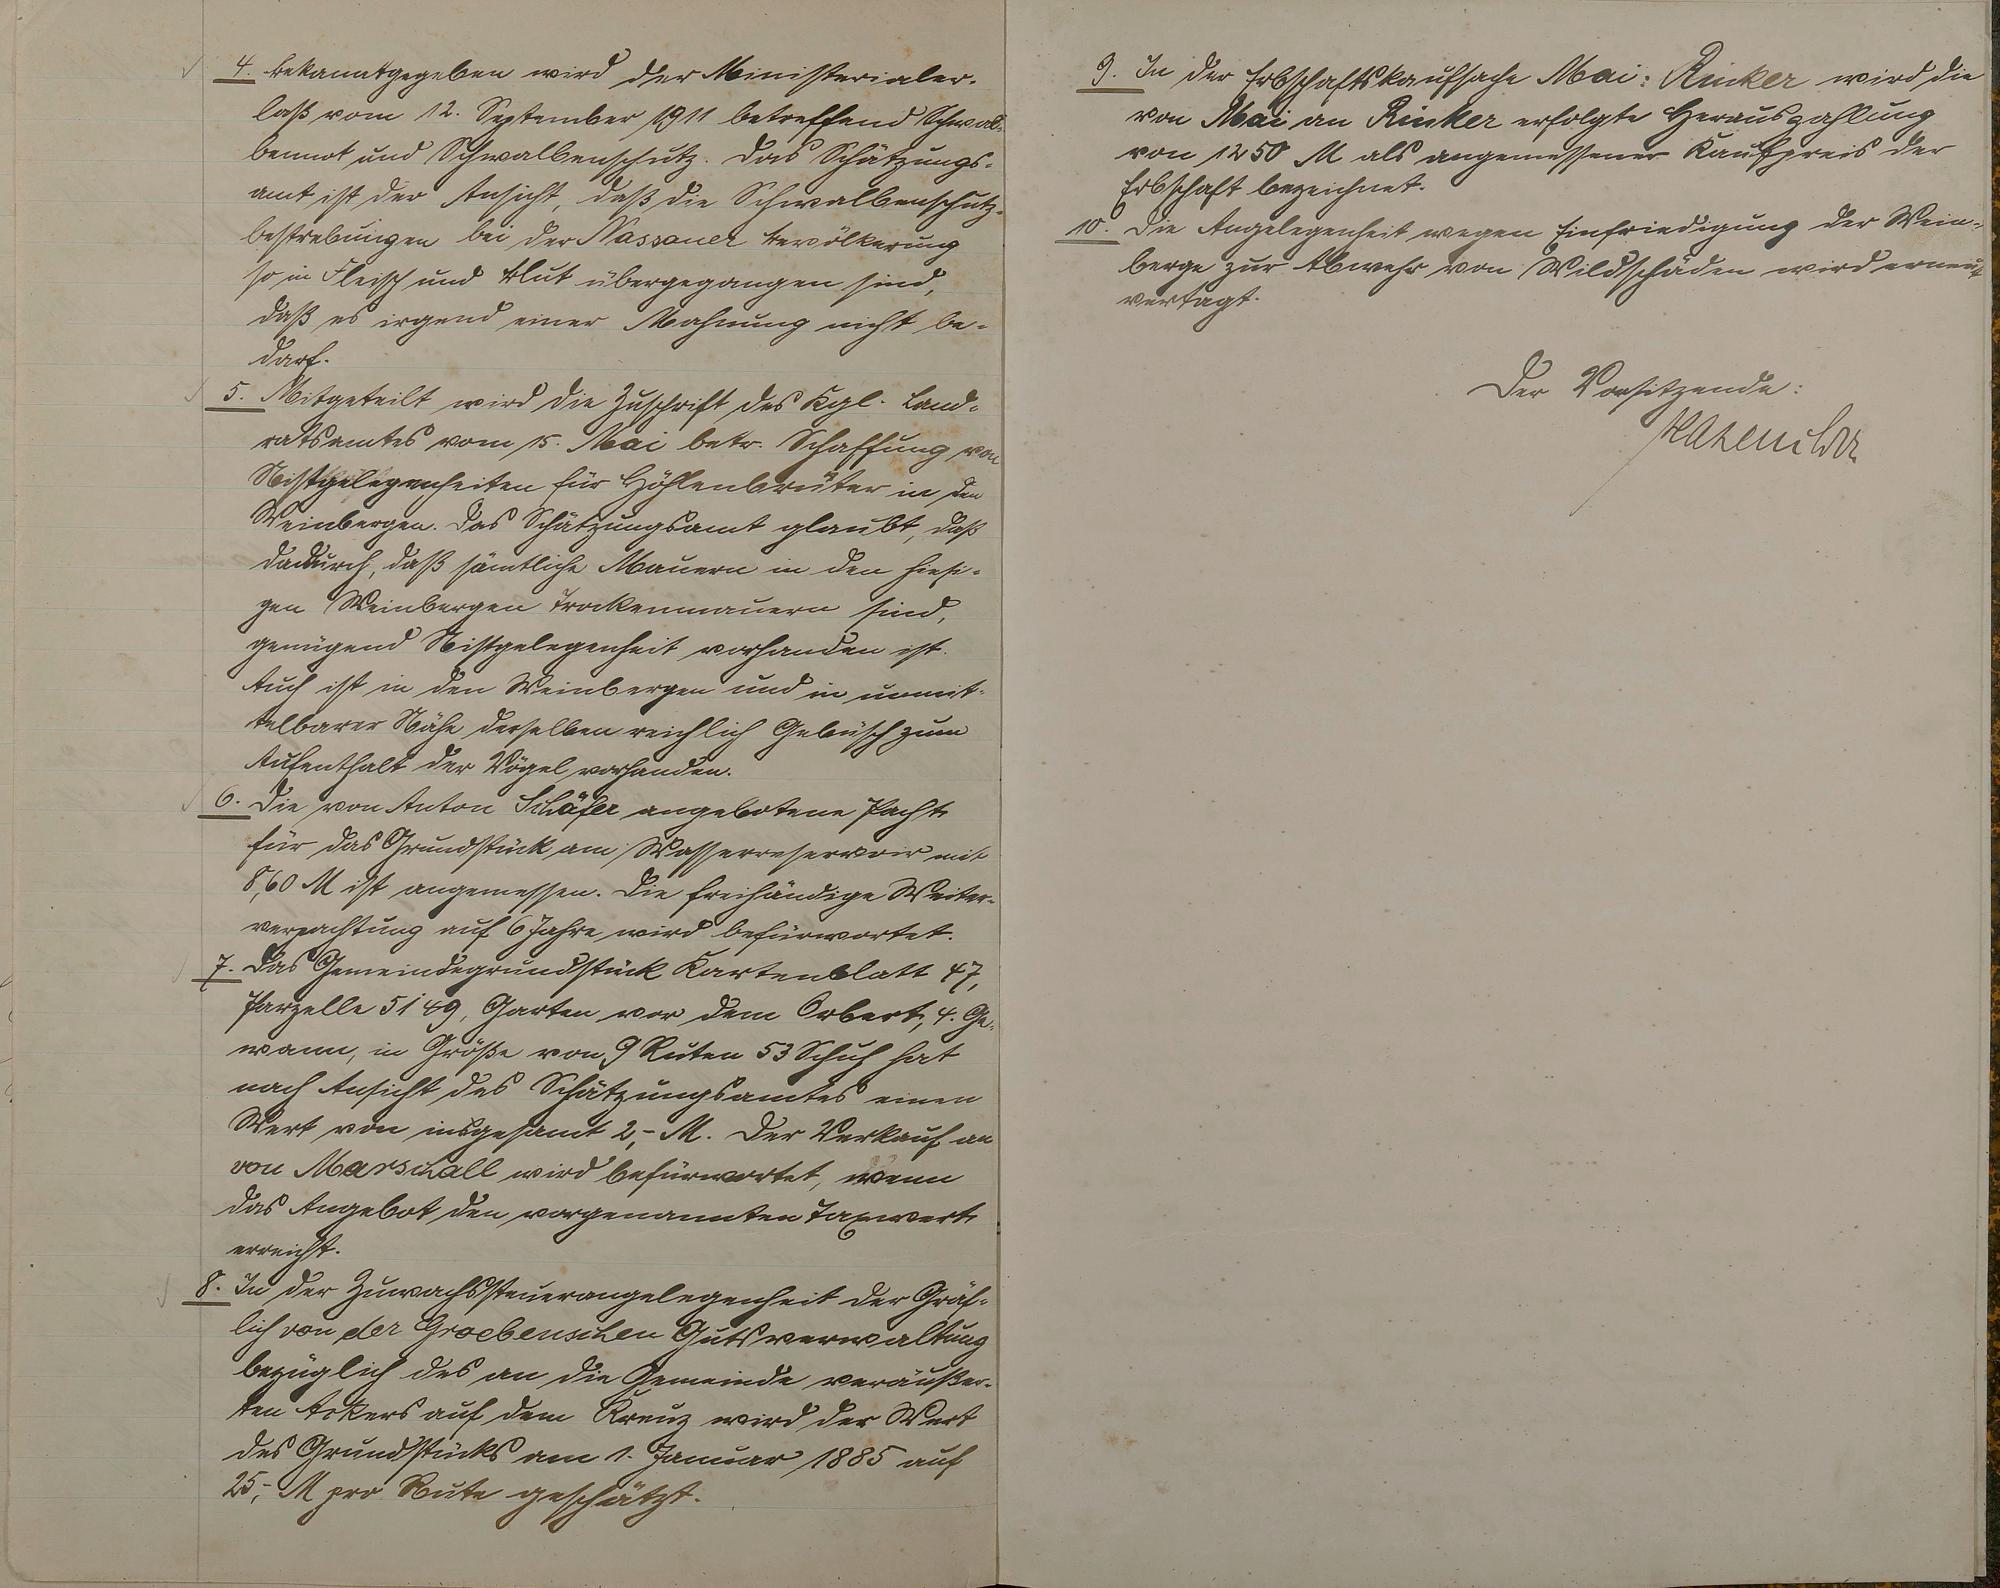 4. Bekanntgegeben wird der Ministerialer-
laß vom 12. September 1911 betreffend Schwal-
bennot und Schwalbenschutz. Das Schätzungs-
amt ist der Ansicht, daß die Schwalbenschutz-
bestrebungen bei der Nassauer Bevölkerung
so in Fleisch und Blut übergegangen sind,
daß es irgend einer Mahnung nicht be-
darf.
5. Mitgeteilt wird die Zuschrift des Kgl. Land-
ratsamtes vom 15. Mai betr. Schaffung von
Nistgelegenheiten für Höhlenbrüter in den
Weinbergen. Das Schätzungsamt glaubt, daß
dadurch, daß sämtliche Mauern in den hiesi-
gen Weinbergen Trockenmauern sind,
genügend Nistgelegenheit vorhanden ist.
Auch ist in den Weinbergen und in unmit-
telbarer Nähe derselben reichlich Gebüsch zum
Aufenthalt der Vögel vorhanden.
6. Die von Anton Schäfer angebotene Pacht
für das Grundstück am Wasserreservoir mit
8,60 M ist angemessen. Die freihändige Weiter-
verpachtung auf 6 Jahre wird befürwortet.
7. Das Gemeindegrundstück Kartenblatt 47,
Parzelle 5149, Garten vor dem Orbert, 4. Ge-
wann, in Größe von 9 Ruten 53 Schuh hat
nach Ansicht des Schätzungsamtes einen
Wert von insgesamt 2,- M. Der Verkauf an
von Marschall wird befürwortet, wenn
das Angebot den vorgenannten Taxwert
erreicht.
8. In der Zuwachssteuerangelegenheit der Gräf-
lich von der Groebenschen Gutsverwaltung
bezüglich des an die Gemeinde veräußer-
ten Ackers auf dem Kreuz wird der Wert
des Grundstücks am 1. Januar 1885 auf
25,- M pro Rute geschätzt.
9. In der Erbschaftskaufsache Mai : Rinker wird die
von Mai an Rinker erfolgte Herauszahlung
von 1250 M als angemessener Kaufpreis der
Erbschaft bezeichnet.
10. Die Angelegenheit wegen Einfriedigung der Wein-
berge zur Abwehr von Wildschäden wird erneut
vertagt.
Der Vorsitzende: